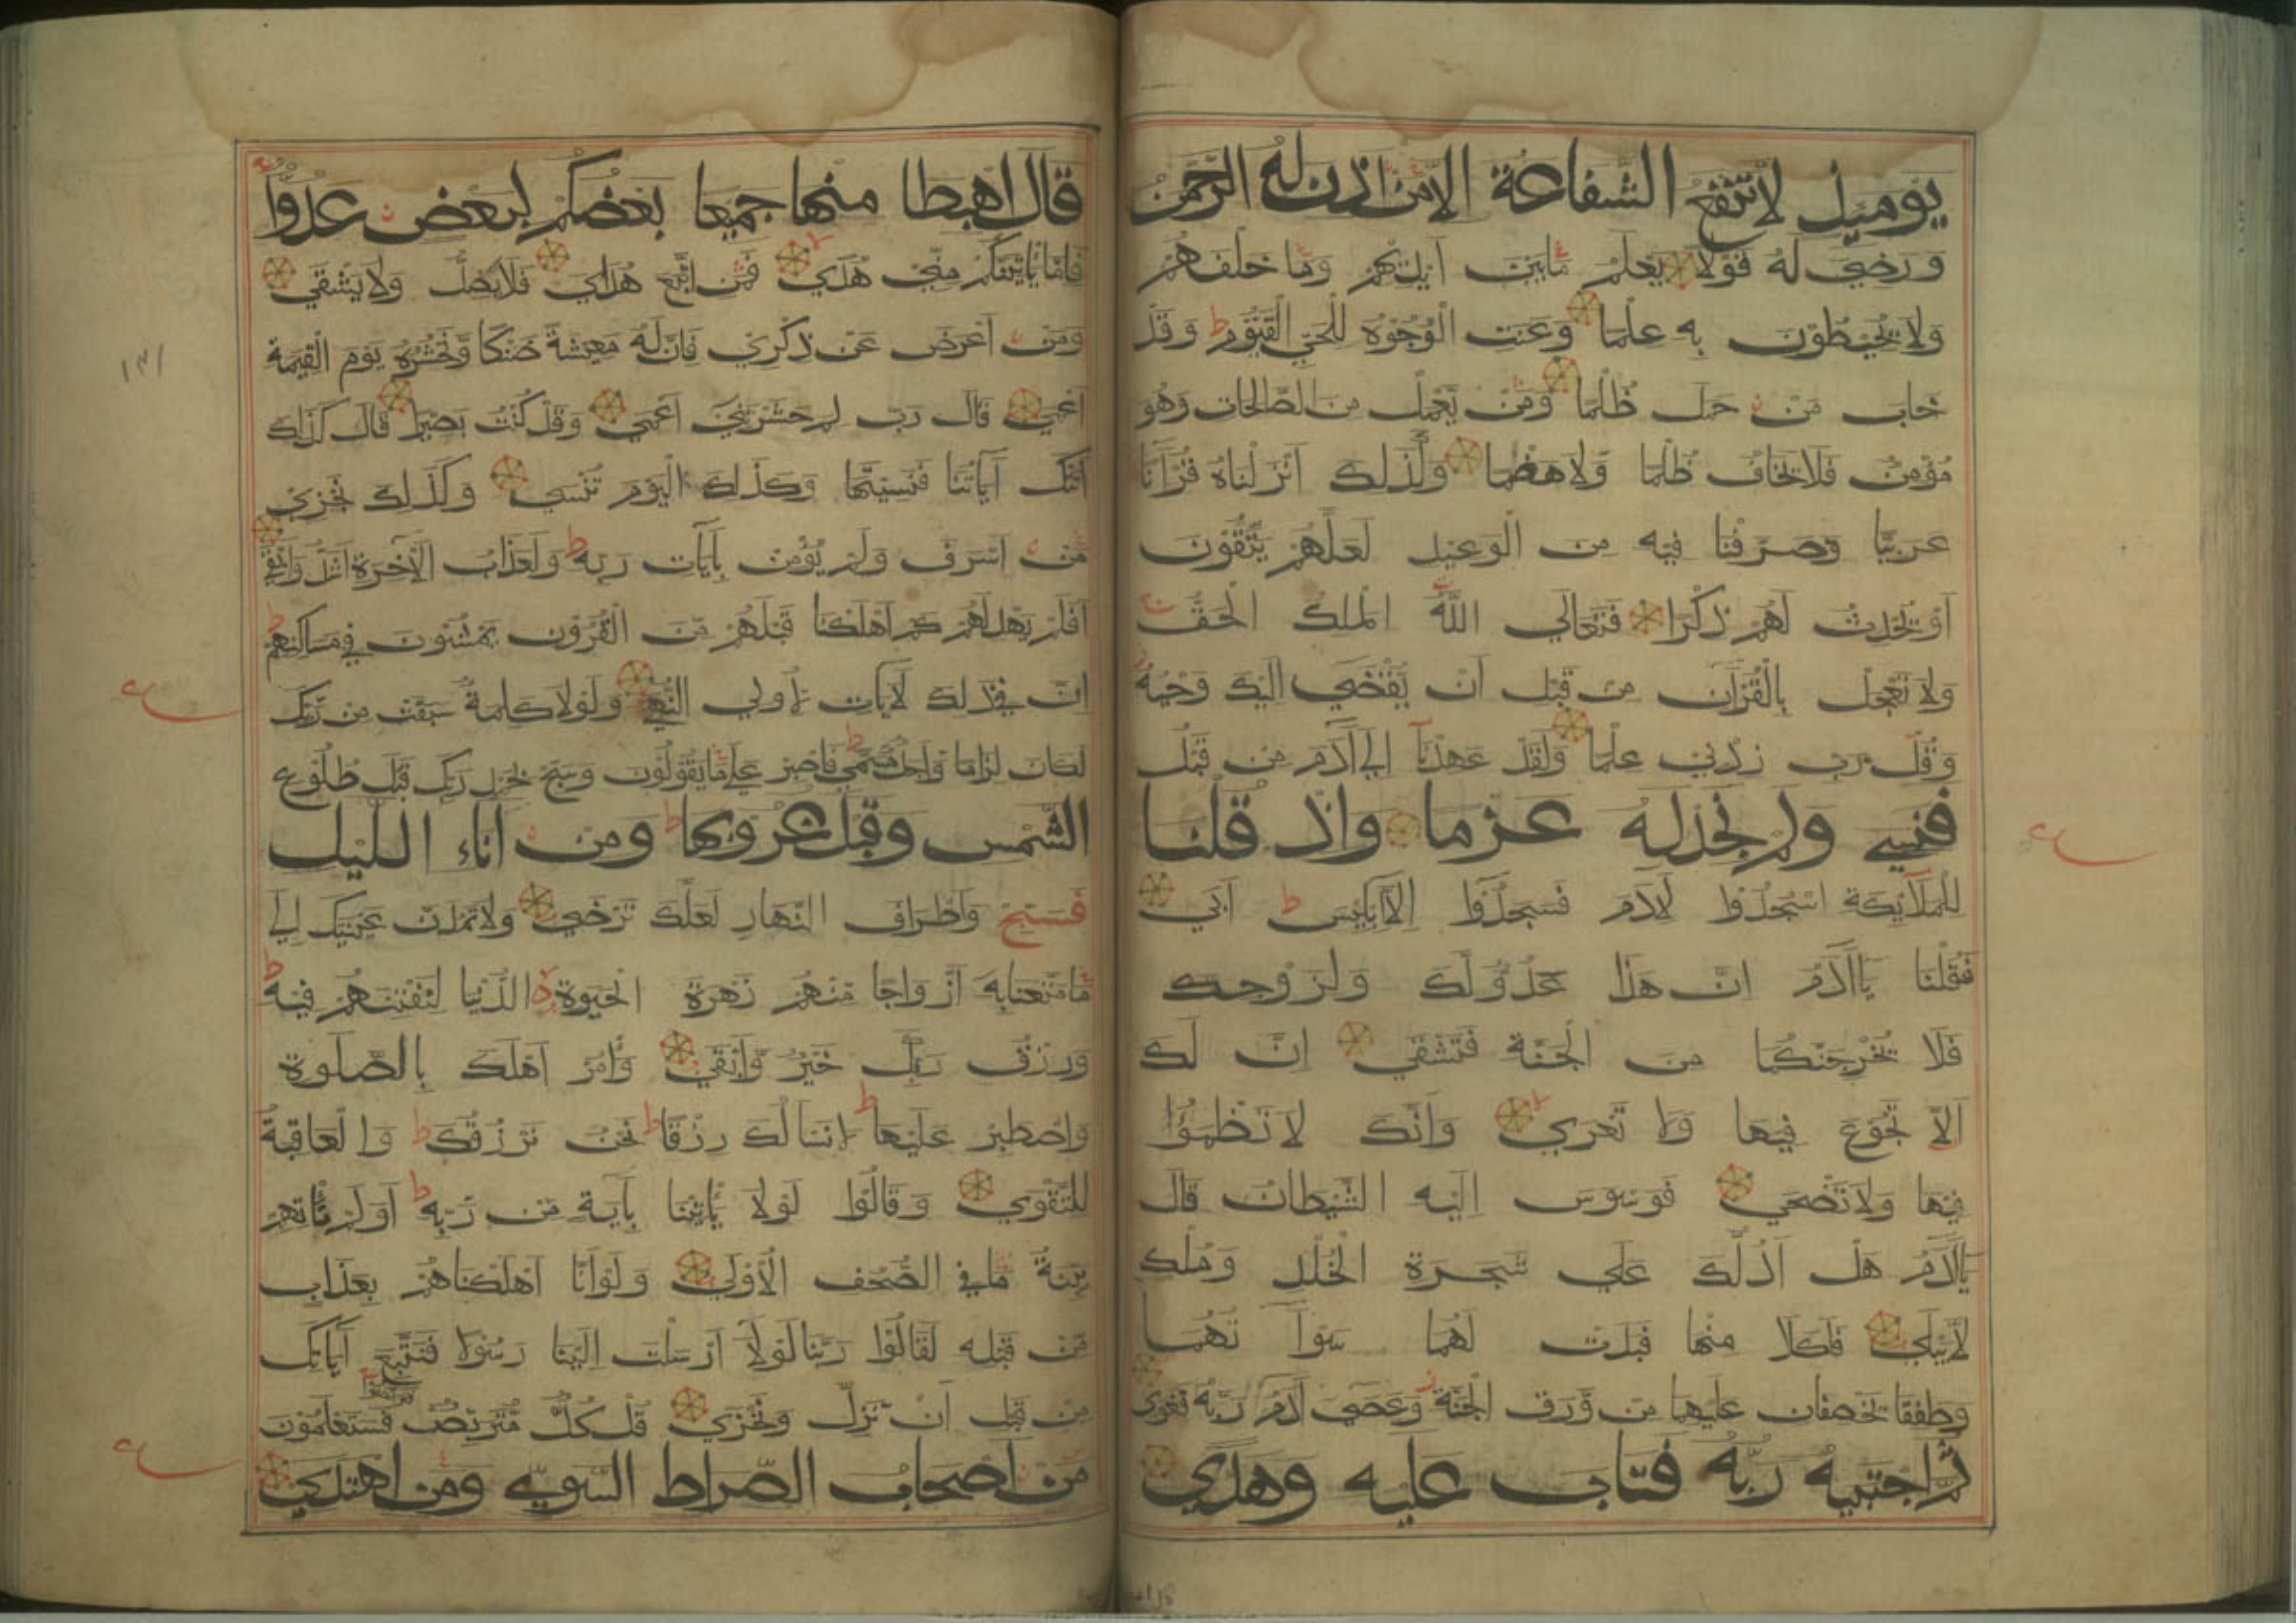 يومئذ لا تنفع الشفاعة الا من اذن له الرحمن
ورضي له قولا يعلم ما بين ايديهم وما خلفهم
ولا يحيطون به علما وعنت الوجوه للحي القيوم ط وقد
خاب من حمل ظلما ومن يعمل من الصالحات وهو
مؤمن فلا يخاف ظلما ولا هضما وكذلك انزلناه قرآنا
عربيا وصرفنا فيه من الوعيد لعلهم يتقون
او يحدث لهم ذكرا فتعالي الله الملك الحق
ولا تعجل بالقرآن من قبل ان يقضي اليك وحيه
وقل رب زدني علما ولقد عهدنا الي آدم من قبل
فنسي ولم نجد له عزما واذ قلنا
للملائكة اسجدوا لآدم فسجدوا الا ابليس ط ابي
فقلنا يا آدم ان هذا عدو لك ولزوجك
فلا يخرجنكما من الجنة فتشقي ان لك
الا تجوع فيها ولا تعري وانك لا تظمؤا
فيها ولا تضحي فوسوس اليه الشيطان قال
يا آدم هل ادلك علي شجرة الخلد وملك
لا يبلي فاكلا منها فبدت لهما سوآتهما
وطفقا يخصفان عليهما من ورق الجنة وعصي آدم ربه فغوي
ثم اجتبيه ربه فتاب عليه وهدي
قال اهبطا منها جميعا بعضكم لبعض عدو
فاما ياتينكم مني هدي فمن اتبع هداي فلا يضل ولا يشقي
ومن اعرض عن ذكري فان له معيشة ضنكا ونحشره يوم القيمة
اعمي قال رب لم حشرتني اعمي وقد كنت بصيرا قال كذلك
اتتك آياتنا فنسيتها وكذلك اليوم تنسي وكذلك نجزي
من اسرف ولم يؤمن بآيات ربه ط ولعذاب الآخرة اشد وابقي
افلم يهد لهم كم اهلكنا قبلهم من القرون يمشون في مساكنهم ط
ان في ذلك لآيات لاولي النهي ولولا كلمة سبقت من ربك
لكان لزاما واجل مسمي ط فاصبر علي ما يقولون وسبح بحمد ربك قبل طلوع
الشمس وقبل غروبها ط ومن اناء الليل
فسبح واطراف النهار لعلك ترضي ولا تمدن عينيك الي
ما متعنا به ازواجا منهم زهرة الحيوة الدنيا لنفتنهم فيه ط
ورزق ربك خير وابقي وأمر اهلك بالصلوة
واصطبر عليها ط لا نسالك رزقا ط نحن نرزقك ط والعاقبة
للتقوي وقالوا لولا ياتينا بآية من ربه ط اولم تاتهم
بينة ما في الصحف الاولي ولو انا اهلكناهم بعذاب
من قبله لقالوا ربنا لولا ارسلت الينا رسولا فنتبع آياتك
من قبل ان نذل ونخزي قل كل متربص فتربصوا فستعلمون
من اصحاب الصراط السوي ومن اهتدي
١٣١
ع
ع
ع